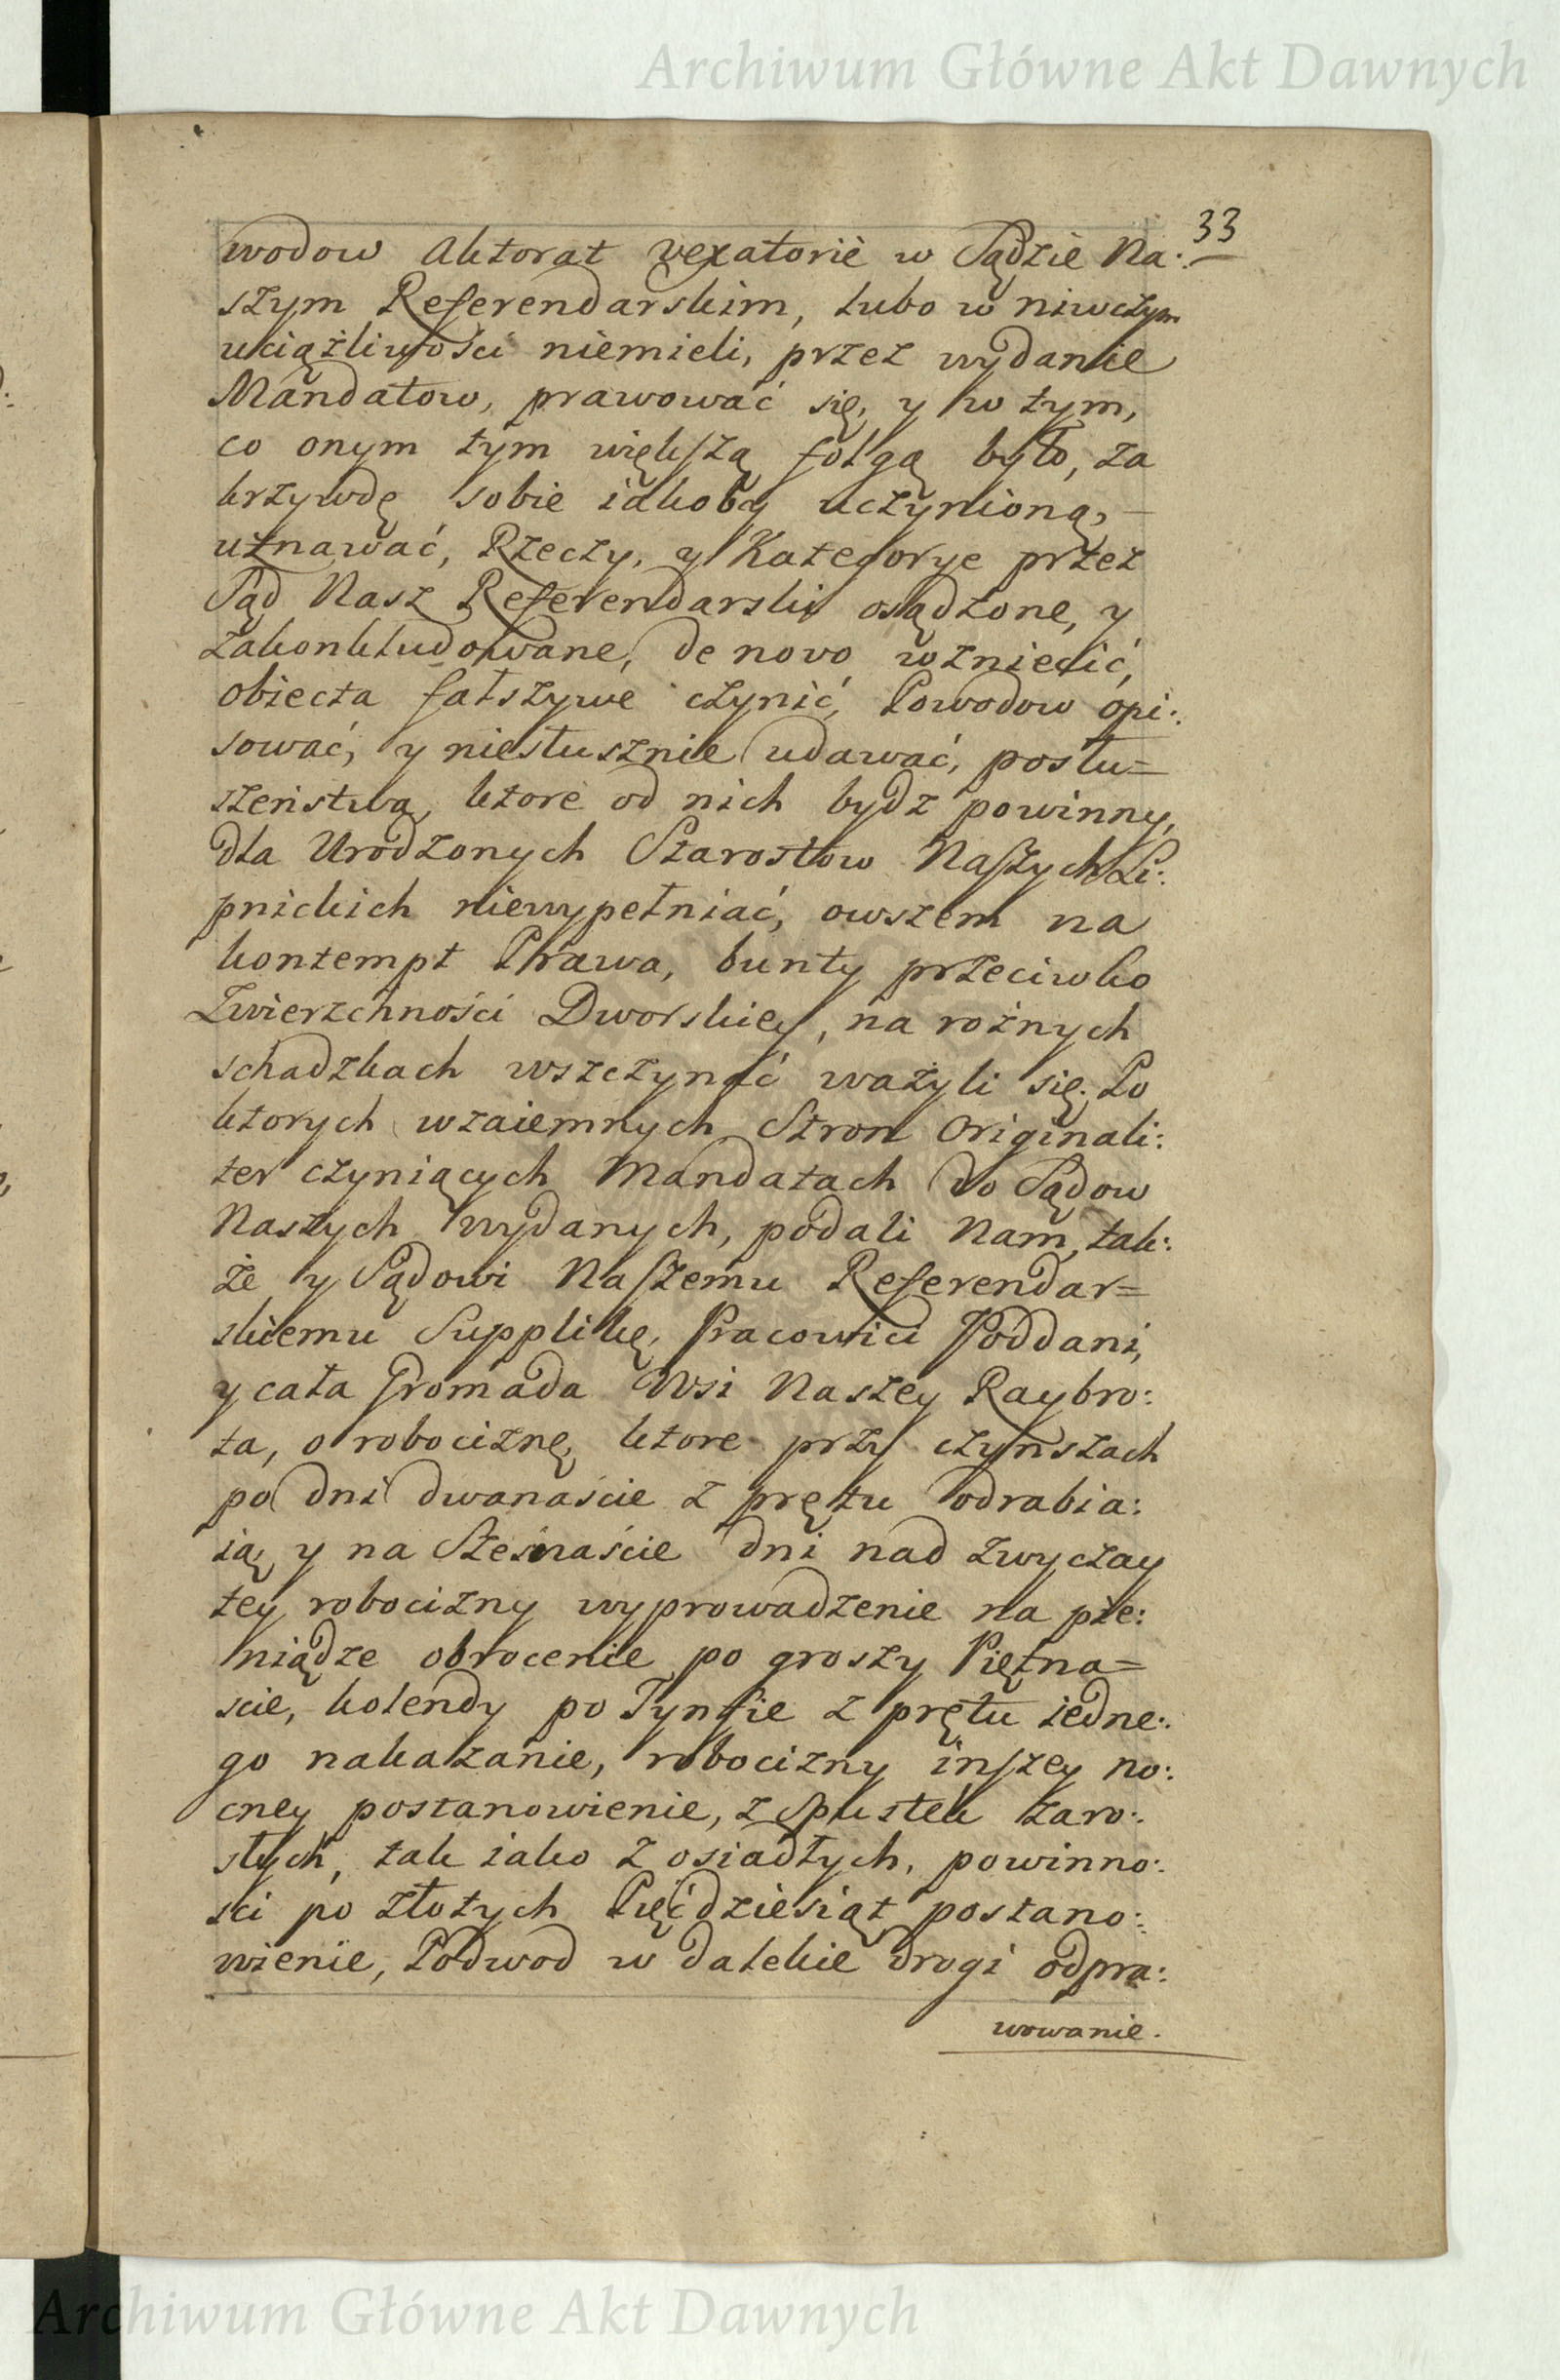 Archiwum Główne Akt Dawnych
33
wodow Aktorat vexatorie w Sądzie Na:
szym Referendarskim, lubo w niwczym
uciążliwości niemieli, przez wydanie
Mandatow, prawować się, y w tym,
co onym tym większą folgą było, za
krzywdę sobie iakoby uczynioną,
uznawać, Rzeczy, y Kategorye przez
Sąd Nasz Referendarski osądzone, y
zakonkludowane, de novo wzniecić,
obiecta fałszywe czynić, Powodow opi:
sować, y niesłusznie udawać, posłu=
szeństwa, ktore od nich bydz powinny,
dla Urodzonych Starostow Naszych Li:
pnickich niewypełniać, owszem na
kontempt Prawa, bunty przeciwko
Zwierzchności Dworskiey, na rożnych
schadzkach wszczynać ważyli się. Po
ktorych wzaiemnych Stron Originali:
ter czyniących Mandatach do Sądow
Naszych wydanych, podali Nam, tak:
że y Sądowi Naszemu Referendar=
skiemu Supplikę, Pracowici Poddani,
y cała Gromada Wsi Naszey Raybro:
ta, o robociznę, ktore przy czynszach
po dni dwanaście z prętu odrabia:
ią, y na Szesnaście dni nad zwyczay
tey robocizny wyprowadzenie na pie:
niądze obrocenie po groszy Piętna=
scie, kolendy po Tynfie z prętu iedne:
go nakazanie, robocizny inszey no:
cney postanowienie, z Spustek zaro:
słych, tak iako z osiadłych, powinno:
sci po złotych Pięćdziesiąt postano:
wienie, Podwod w dalekie drogi odpra:
wowanie.
Archiwum Główne Akt Dawnych